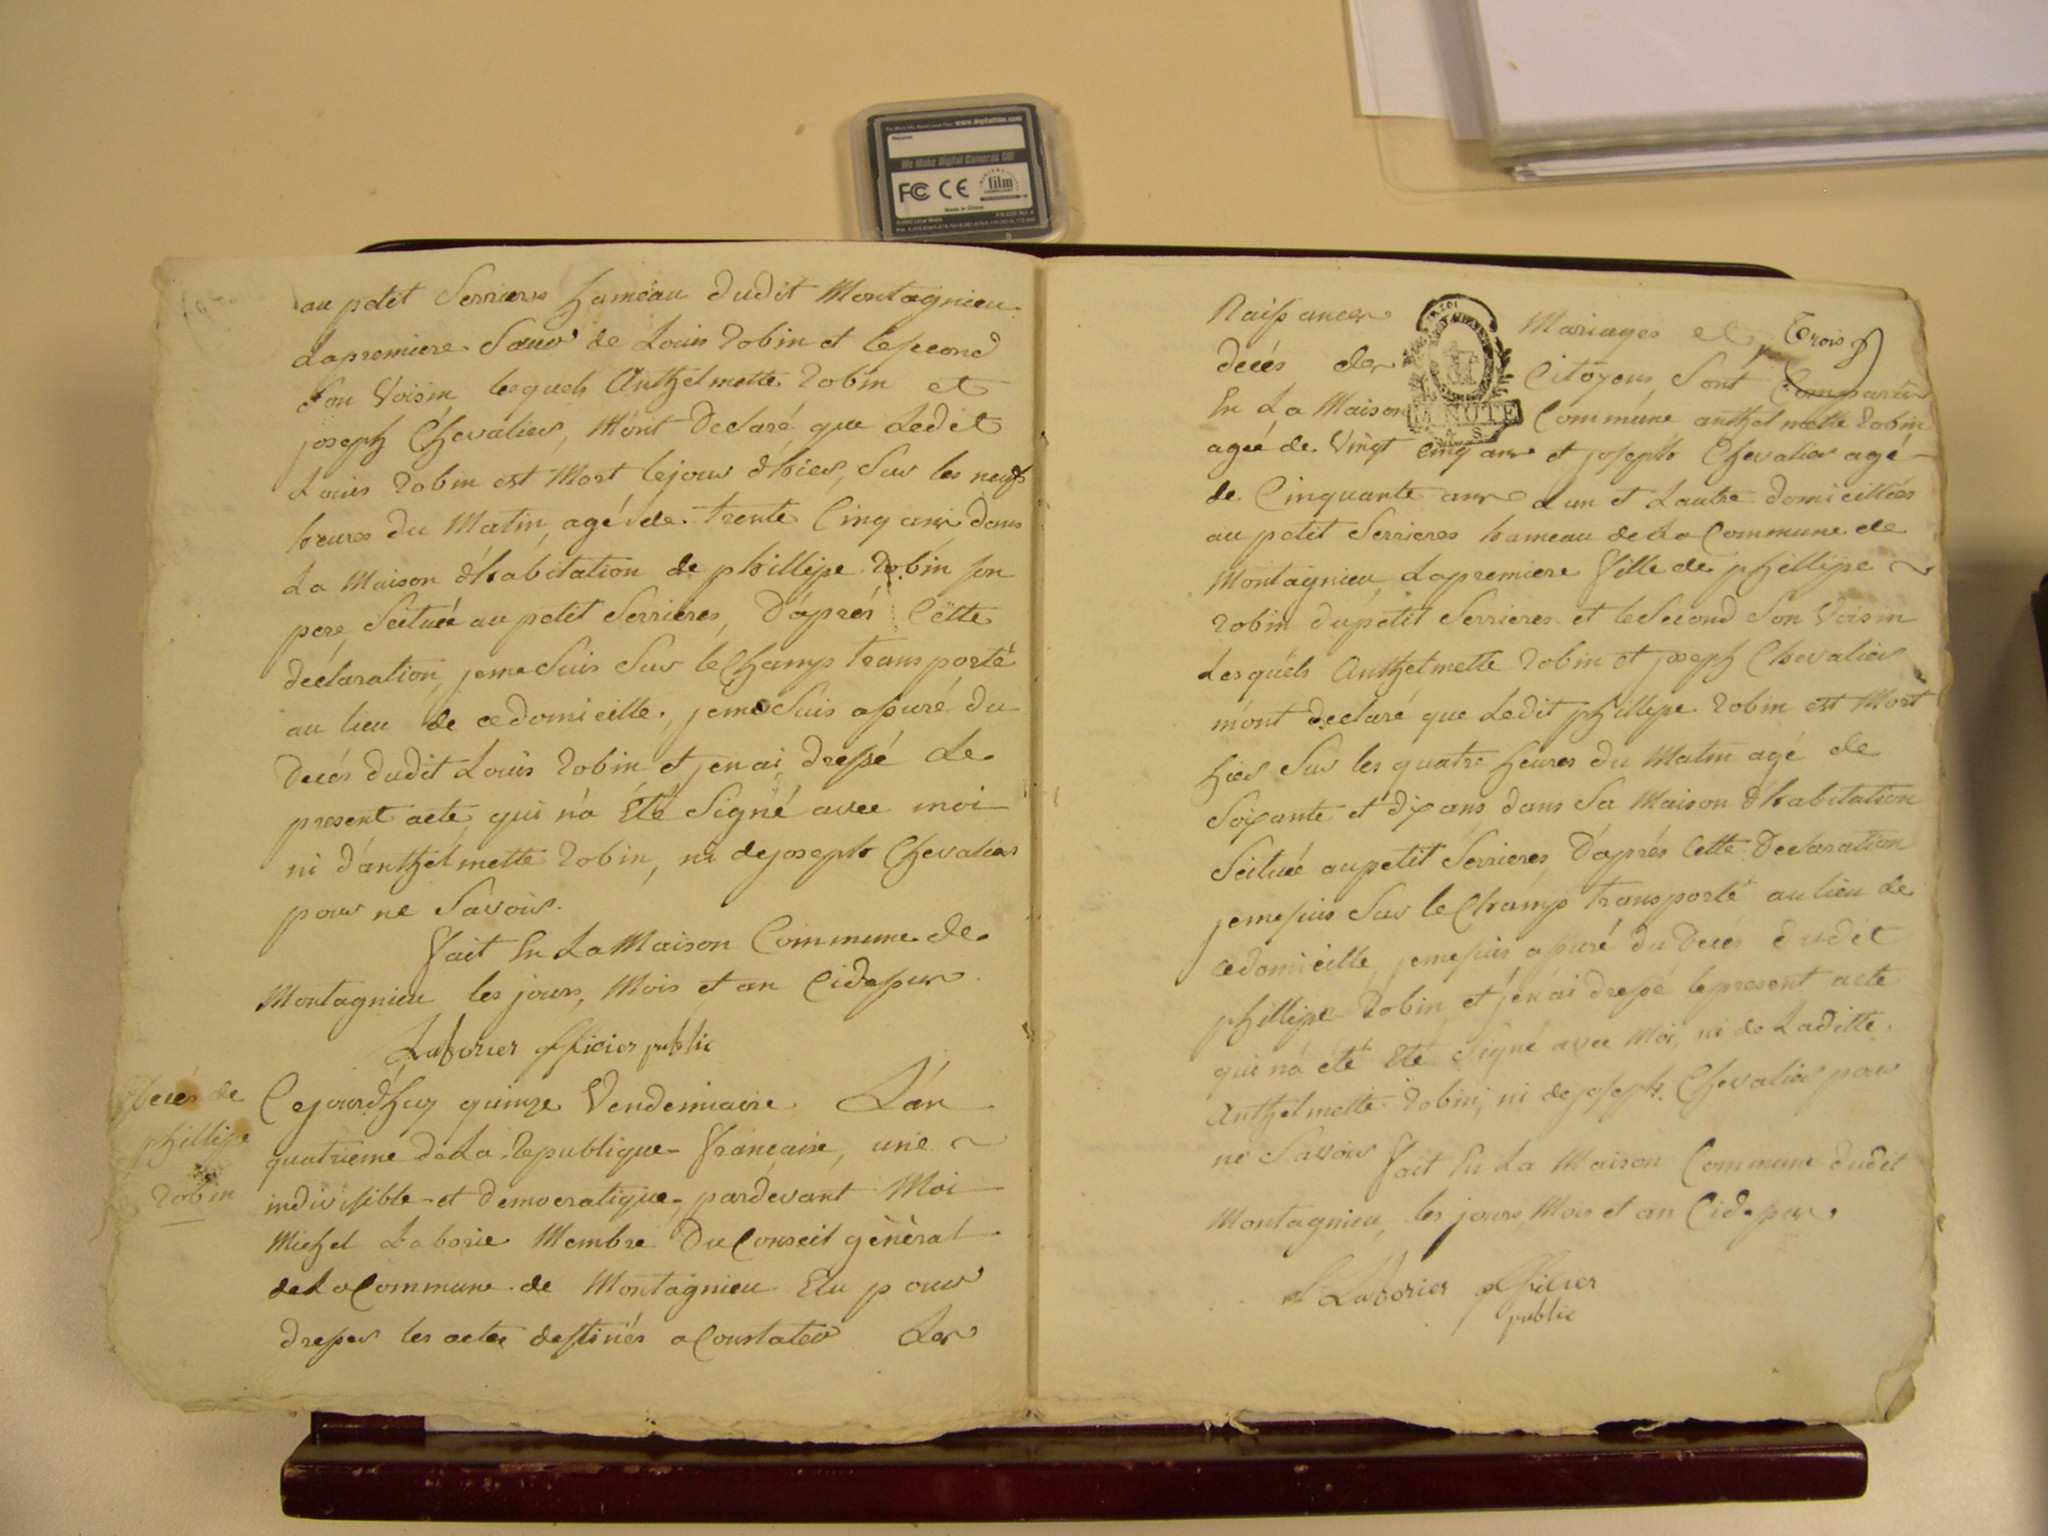 www.digitalfilm.com
We Make Digital Cameras GO!
FC CE film
Made in China
au petit Serrieres hameau dudit Montagnieu
La premiere Sœur de Louis Robin et le second
Son Voisin lesquels Anthelmette Robin et
joseph Chevalier, M'ont Declaré que Ledit
Louis Robin est Mort le jour d'hier, Sur les neuf
heures du Matin, agé de trente Cinq ans dans
La Maison d'habitation de phillipe Robin son
pere Scituée au petit Serrieres, D'aprés Cette
declaration, je me Suis Sur le Champ transporté
au lieu de ce domicille, je me Suis assuré du
decés dudit Louis Robin et j'en ai dressé Le
present acte qui n'a Eté Signé avec moi
ni d'anthelmette Robin, ni de joseph Chevalier
pour ne Savoir.
Fait En La Maison Commune de
Montagnieu les jours, Mois et an Cidessus
Laborier officier public
Decés de
phillipe
Robin
Cejourd'huy quinze Vendemiaire L'an
quatrieme de La Republique Française, une
indivisible et democratique, pardevant Moi
Michel Laborie Membre Du Conseil général
de La Commune de Montagnieu Elu pour
dresser les actes destinés a Constater Les
Trois
Naissances Mariages et
decés des Citoyens, Sont Comparus
En La Maison Commune anthelmette Robin
MINUTE
ageé de Vingt Cinq ans et joseph Chevalier agé
de Cinquante ans L'un et L'autre domicillés
au petit Serrieres hameau de La Commune de
Montaignieu, La premiere fille de phillipe
Robin du petit Serrieres et le Second Son Voisin
Lesquels Anthelmette Robin et joseph Chevalier
m'ont declaré que Ledit phillipe Robin est Mort
hier Sur les quatre heures du Matin agé de
Soixante et dix ans dans Sa Maison d'habitation
Scituée au petit Serrieres, D'aprés Cette Declaration
je me suis Sur le Champ transporté au lieu de
ce domicille, je me suis assuré du Decés dudit
phillipe Robin et j'en ai dressé le present acte
qui n'a été Eté Signé avec Moi, ni de Laditte
Anthelmette Robin, ni de joseph Chevalier pour
ne Savoir Fait En La Maison Commune dudit
Montagnieu, les jours, Mois et an Cidessus.
Laborier officier
public